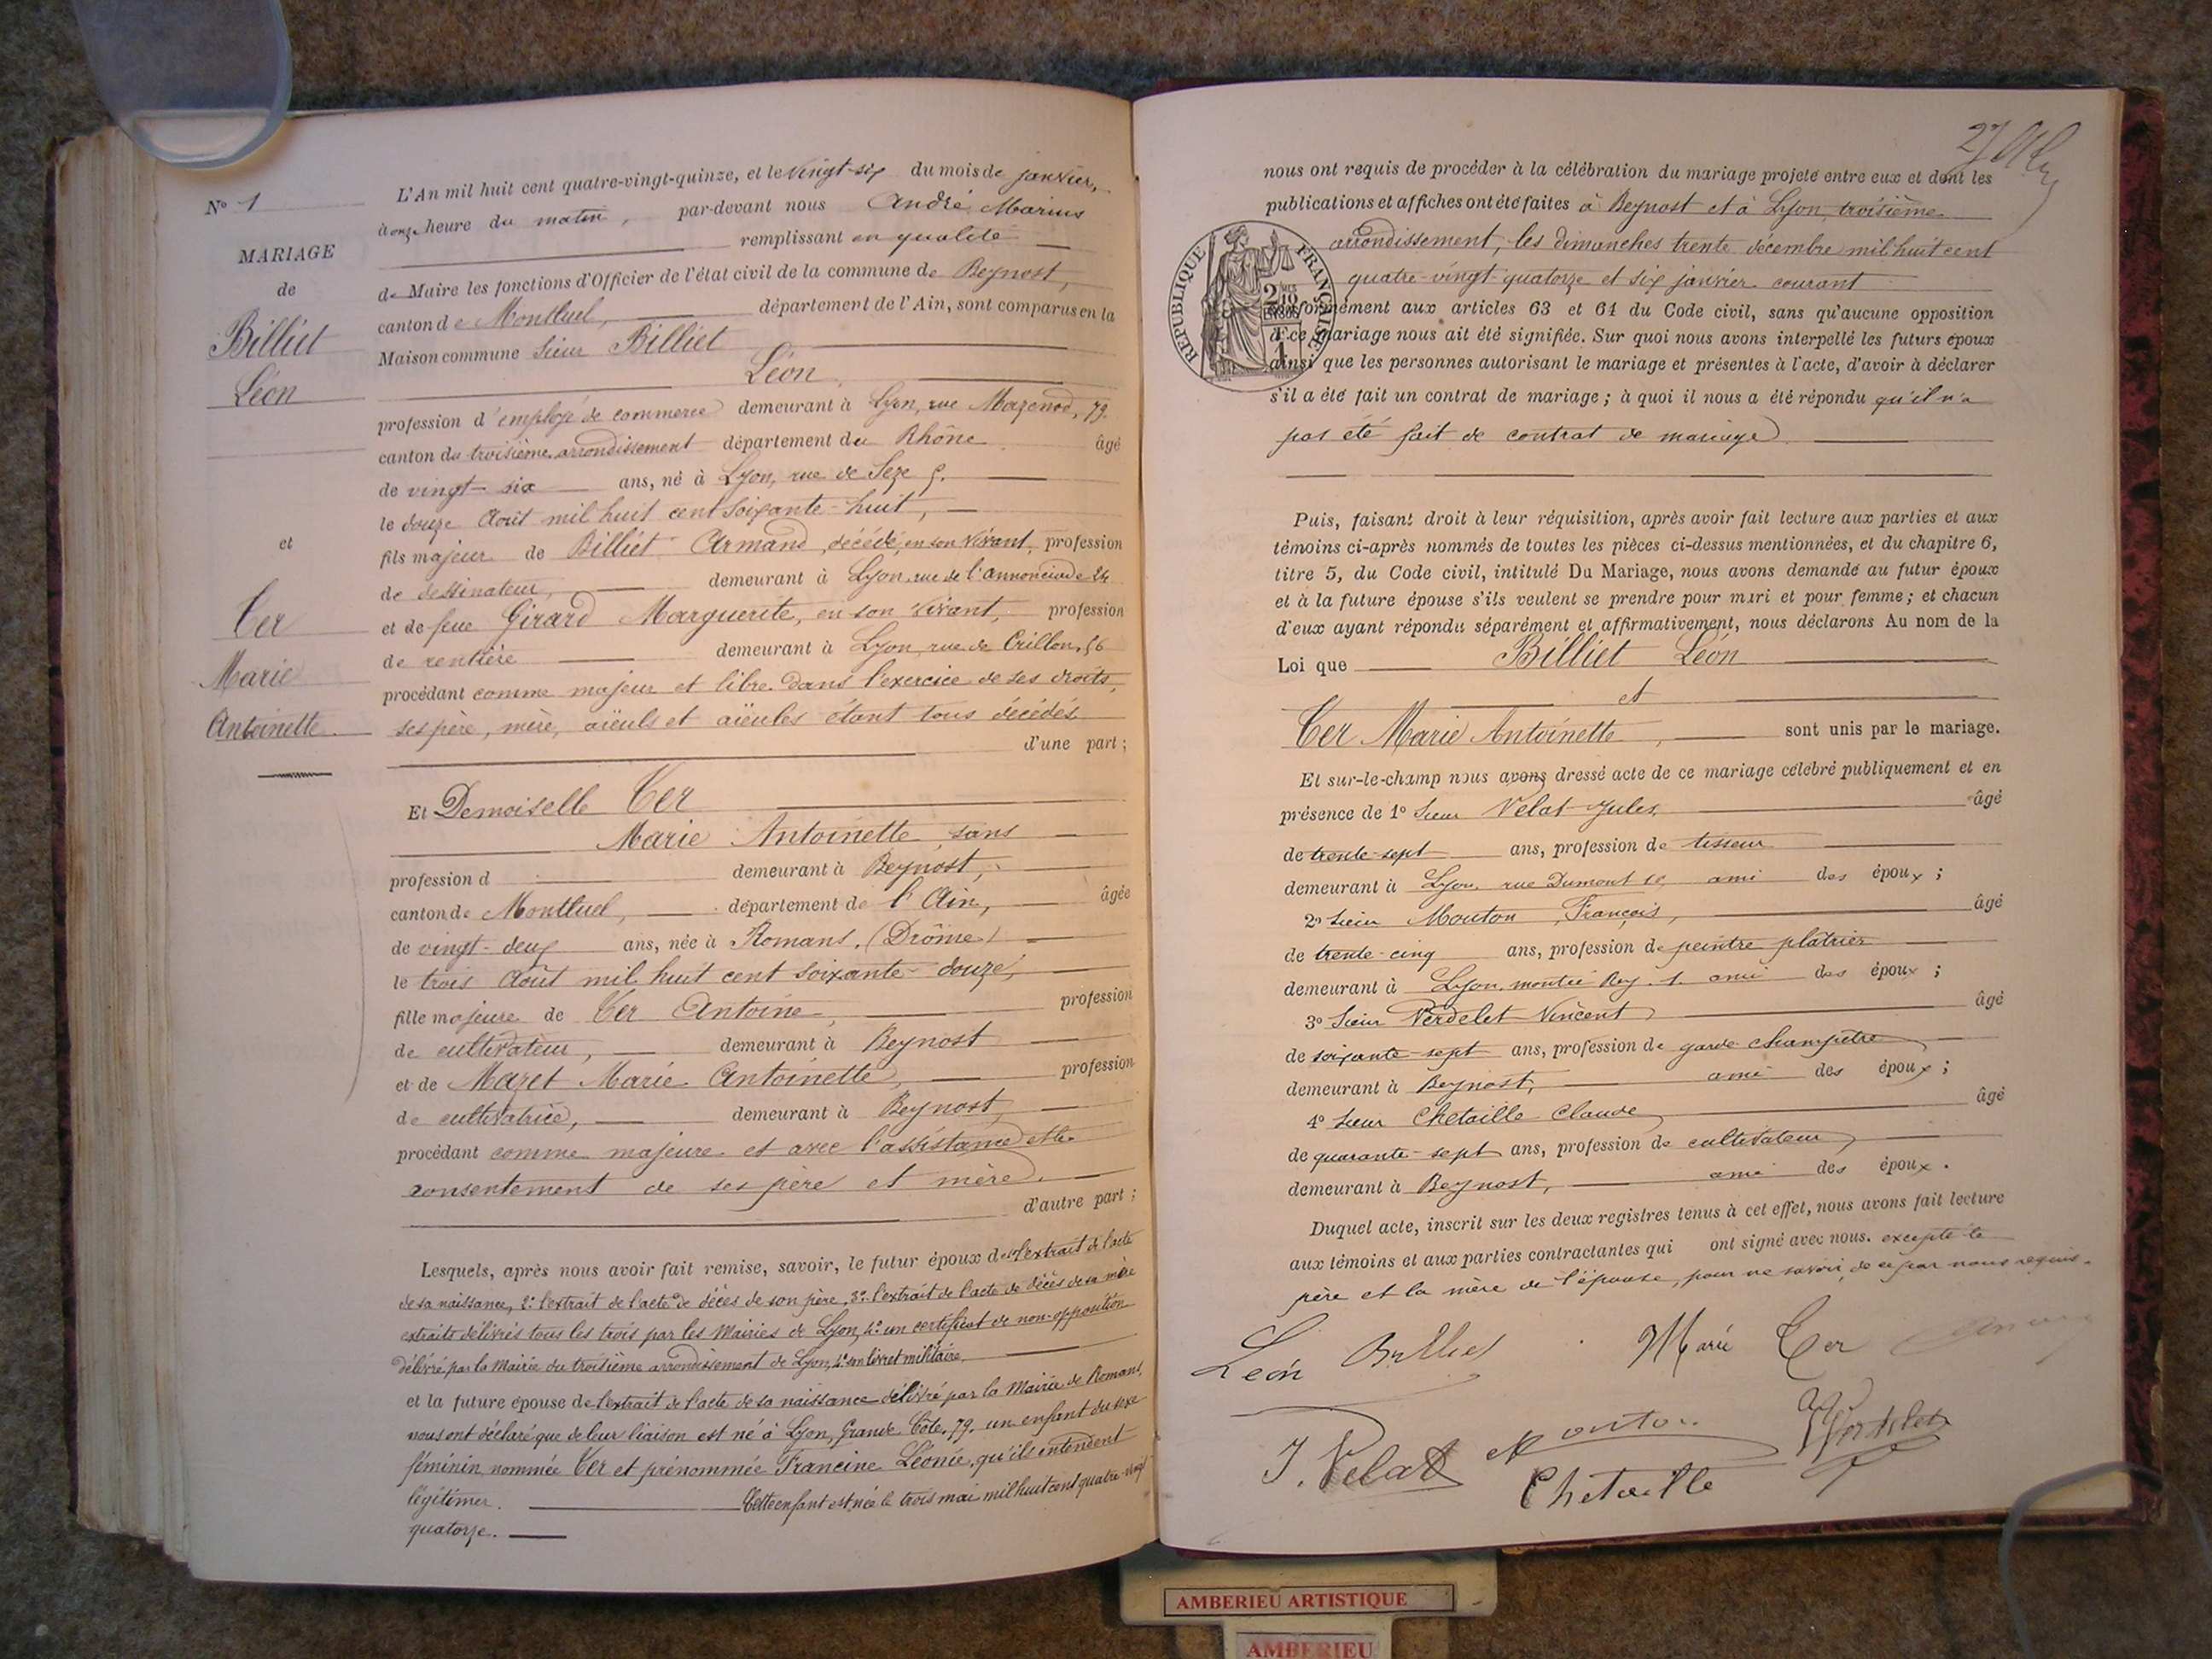 N° 1
MARIAGE
de
Billiet
Léon
et
Cer
Marie
Antoinette
L'An mil huit cent quatre-vingt-quinze, et le vingt-six du mois de janvier,
à onze heure du matin, par-devant nous André Marius
remplissant en qualité
de Maire les fonctions d'Officier de l'état civil de la commune de Beynost,
canton de Montluel, département de l'Ain, sont comparus en la
Maison commune sieur Billiet
Léon,
profession d'employé de commerce demeurant à Lyon, rue Mazenod, 79.
canton du troisième arrondissement département du Rhône âgé
de vingt-six ans, né à Lyon, rue de Seze 5.
le douze Août mil huit cent soixante-huit,
fils majeur de Billiet Armand, décédé, en son vivant, profession
de dessinateur, demeurant à Lyon, rue de l'Annonciade 24
et de feue Girard Marguerite, en son vivant, profession
de rentière demeurant à Lyon, rue de Crillon, 56
procédant comme majeur et libre dans l'exercice de ses droits,
ses père, mère, aïeuls et aïeules étant tous décédés
d'une part ;
Et Demoiselle Cer
Marie Antoinette, sans
profession d demeurant à Beynost,
canton de Montluel, département de l'Ain, âgée
de vingt-deux ans, née à Romans, (Drôme)
le trois Août mil huit cent soixante-douze,
fille majeure de Cer Antoine, profession
de cultivateur, demeurant à Beynost
et de Mazet Marie Antoinette, profession
de cultivatrice, demeurant à Beynost,
procédant comme majeure et avec l'assistance et le
consentement de ses père et mère.
d'autre part ;
Lesquels, après nous avoir fait remise, savoir, le futur époux de l'extrait de l'acte
de sa naissance, 2° l'extrait de l'acte de décès de son père, 3° l'extrait de l'acte de décès de sa mère
extraits délivrés tous les trois par les Mairies de Lyon, 4° un certificat de non-opposition
délivré par la Mairie du troisième arrondissement de Lyon, 4° son livret militaire.
et la future épouse de l'extrait de l'acte de sa naissance délivré par la Mairie de Romans,
nous ont déclaré que de leur liaison est né à Lyon, Grande Côte, 79, un enfant du sexe
féminin, nommée Cer et prénommée Francine Léonie, qu'ils entendent
légitimer. Cette enfant est née le trois mai mil huit cent quatre-vingt
quatorze.
27
nous ont requis de procéder à la célébration du mariage projeté entre eux et dont les
publications et affiches ont été faites à Beynost et à Lyon, troisième
arrondissement, les dimanches trente décembre mil huit cent
quatre-vingt-quatorze et six janvier courant
RÉPUBLIQUE FRANÇAISE
conformément aux articles 63 et 64 du Code civil, sans qu'aucune opposition
à ce mariage nous ait été signifiée. Sur quoi nous avons interpellé les futurs époux
ainsi que les personnes autorisant le mariage et présentes à l'acte, d'avoir à déclarer
s'il a été fait un contrat de mariage ; à quoi il nous a été répondu qu'il n'a
pas été fait de contrat de mariage.
Puis, faisant droit à leur réquisition, après avoir fait lecture aux parties et aux
témoins ci-après nommés de toutes les pièces ci-dessus mentionnées, et du chapitre 6,
titre 5, du Code civil, intitulé Du Mariage, nous avons demandé au futur époux
et à la future épouse s'ils veulent se prendre pour mari et pour femme ; et chacun
d'eux ayant répondu séparément et affirmativement, nous déclarons Au nom de la
Loi que Billiet Léon
et
Cer Marie Antoinette, sont unis par le mariage.
Et sur-le-champ nous avons dressé acte de ce mariage célébré publiquement et en
présence de 1° Sieur Velat Jules, âgé
de trente-sept ans, profession de tisseur
demeurant à Lyon, rue Dumont 10, ami des époux ;
2° Sieur Mouton François, âgé
de trente-cinq ans, profession de peintre plâtrier
demeurant à Lyon, montée Rey, 1, ami des époux ;
3° Sieur Verdelet Vincent âgé
de soixante-sept ans, profession de garde champêtre
demeurant à Beynost, ami des époux ;
4° Sieur Chetaille Claude âgé
de quarante-sept ans, profession de cultivateur,
demeurant à Beynost, ami des époux.
Duquel acte, inscrit sur les deux registres tenus à cet effet, nous avons fait lecture
aux témoins et aux parties contractantes qui ont signé avec nous. excepté le
père et la mère de l'épouse, pour ne savoir, de ce par nous requis.
Léon Billiet Marie Cer
J. Velat Mouton Verdelet
Chetaille
AMBERIEU ARTISTIQUE
AMBERIEU